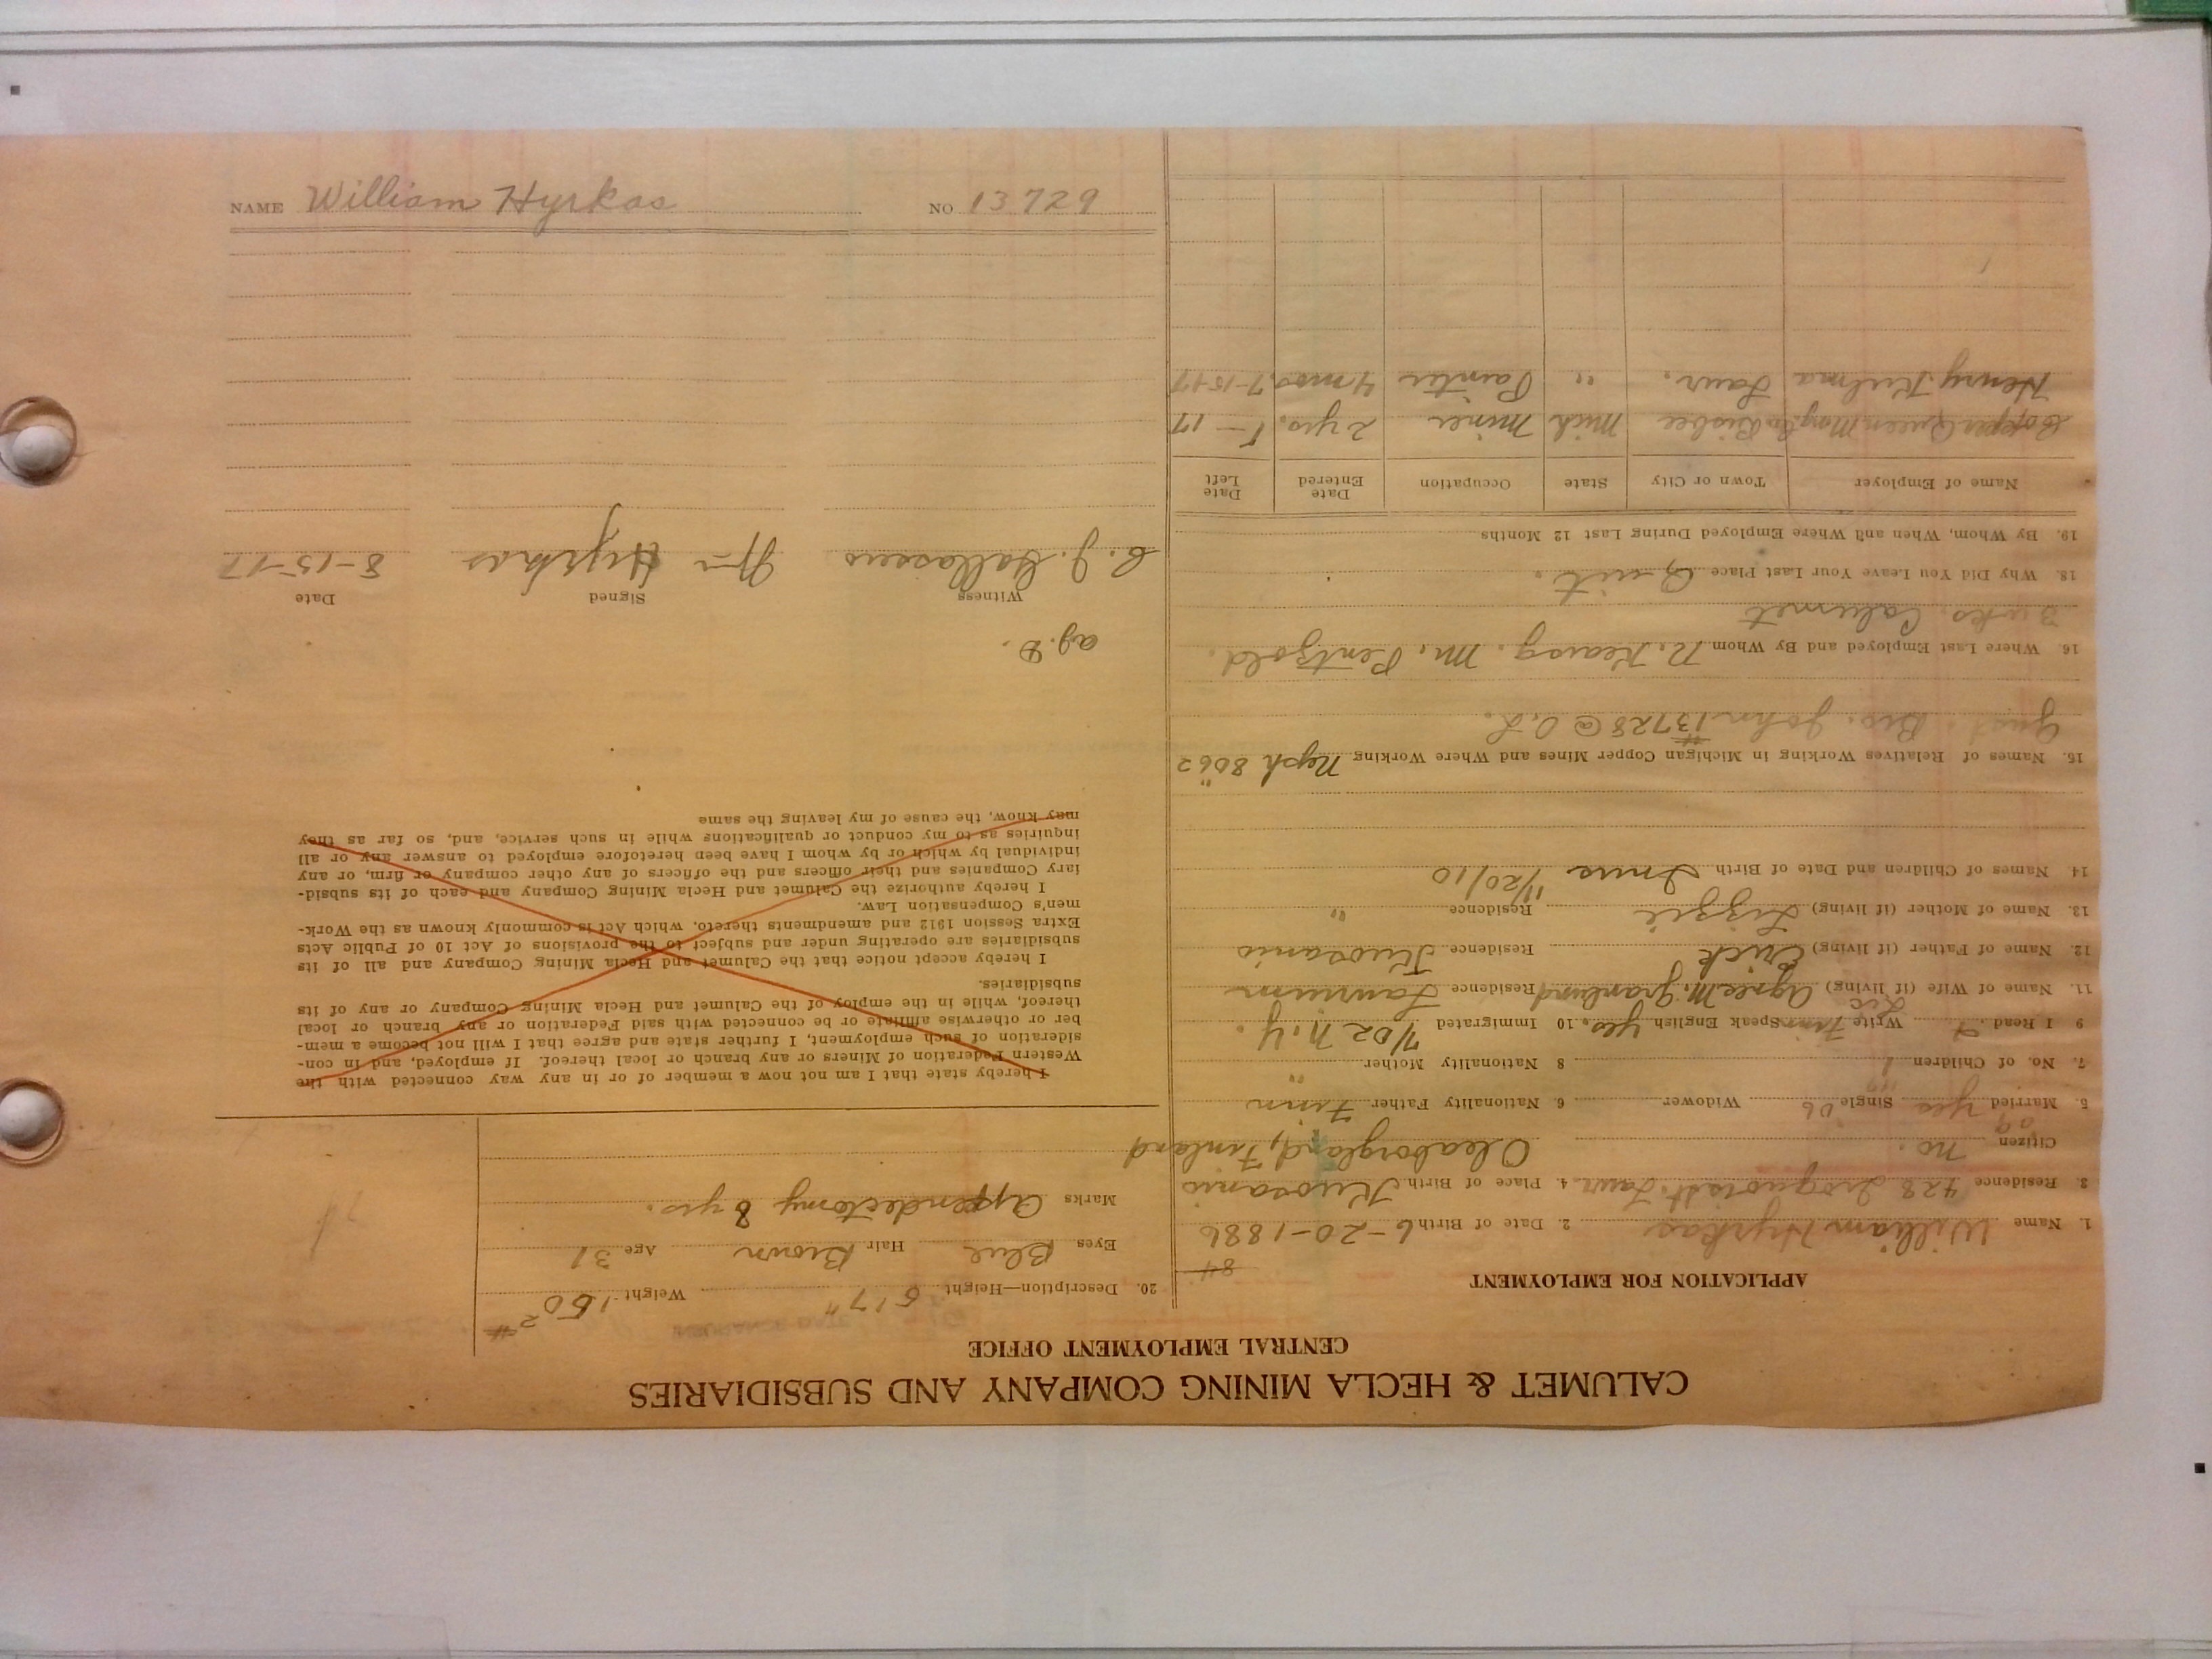 CALUMET & HECLA MINING COMPANY AND SUBSIDIARIES
CENTRAL EMPLOYMENT OFFICE
APPLICATION FOR EMPLOYMENT
84
1. Name William Hyrkas 2. Date of Birth 6-20-1886
3. Residence 428 Iroquois St. Laur. 4. Place of Birth Kuosanio
Citizen no. Oleaborgland, Finland
5. Married yes 09 Single 06 Widower 6. Nationality Father Finn
7. No. of Children 1 8 Nationality Mother "
9 I Read Write Finn Speak English yes. 10 Immigrated 7/02 N.Y.
11. Name of Wife (if living) Agnes M. Granlund Residence Laurium
12. Name of Father (if living) Erick Residence Kuosanio
13. Name of Mother (if living) Lizzie Residence "
14. Names of Children and Date of Birth 11/20/10
15. Names of Relatives Working in Michigan Copper Mines and Where Working Neph 8062
Gust. Bro. John #13728 @ O.L.
16. Where Last Employed and By Whom N. Kearsg. M. Pentzold.
3 wks. Calumet
18. Why Did You Leave Your Last Place Quit.
19. By Whom, When and Where Employed During Last 12 Months
Name of Employer Town or City State Occupation Date Entered Date Left
Copper Queen Bisbee Mich Miner 2 yrs. - 17
Henry Kulma Laur. " Painter 4 mos. 7-15-17
20. Description—Height 5'7" Weight 150#
Eyes Blue Hair Brown Age 31
Marks Appendectomy 8 yrs.
I hereby state that I am not now a member of or in any way connected with the
Western Federation of Miners or any branch or local thereof. If employed, and in con-
sideration of such employment, I further state and agree that I will not become a mem-
ber or otherwise affiliate or be connected with said Federation or any branch or local
thereof, while in the employ of the Calumet and Hecla Mining Company or any of its
subsidiaries.
I hereby accept notice that the Calumet and Hecla Mining Company and all of its
subsidiaries are operating under and subject to the provisions of Act 10 of Public Acts
Extra Session 1912 and amendments thereto, which Act is commonly known as the Work-
men's Compensation Law.
I hereby authorize the Calumet and Hecla Mining Company and each of its subsid-
iary Companies and their officers and the officers of any other company or firm, or any
individual by which or by whom I have been heretofore employed to answer any or all
inquiries as to my conduct or qualifications while in such service, and, so far as they
may know, the cause of my leaving the same
Witness Signed Date
Wm Hyrkas 8-15-17
NAME William Hyrkas NO 13729